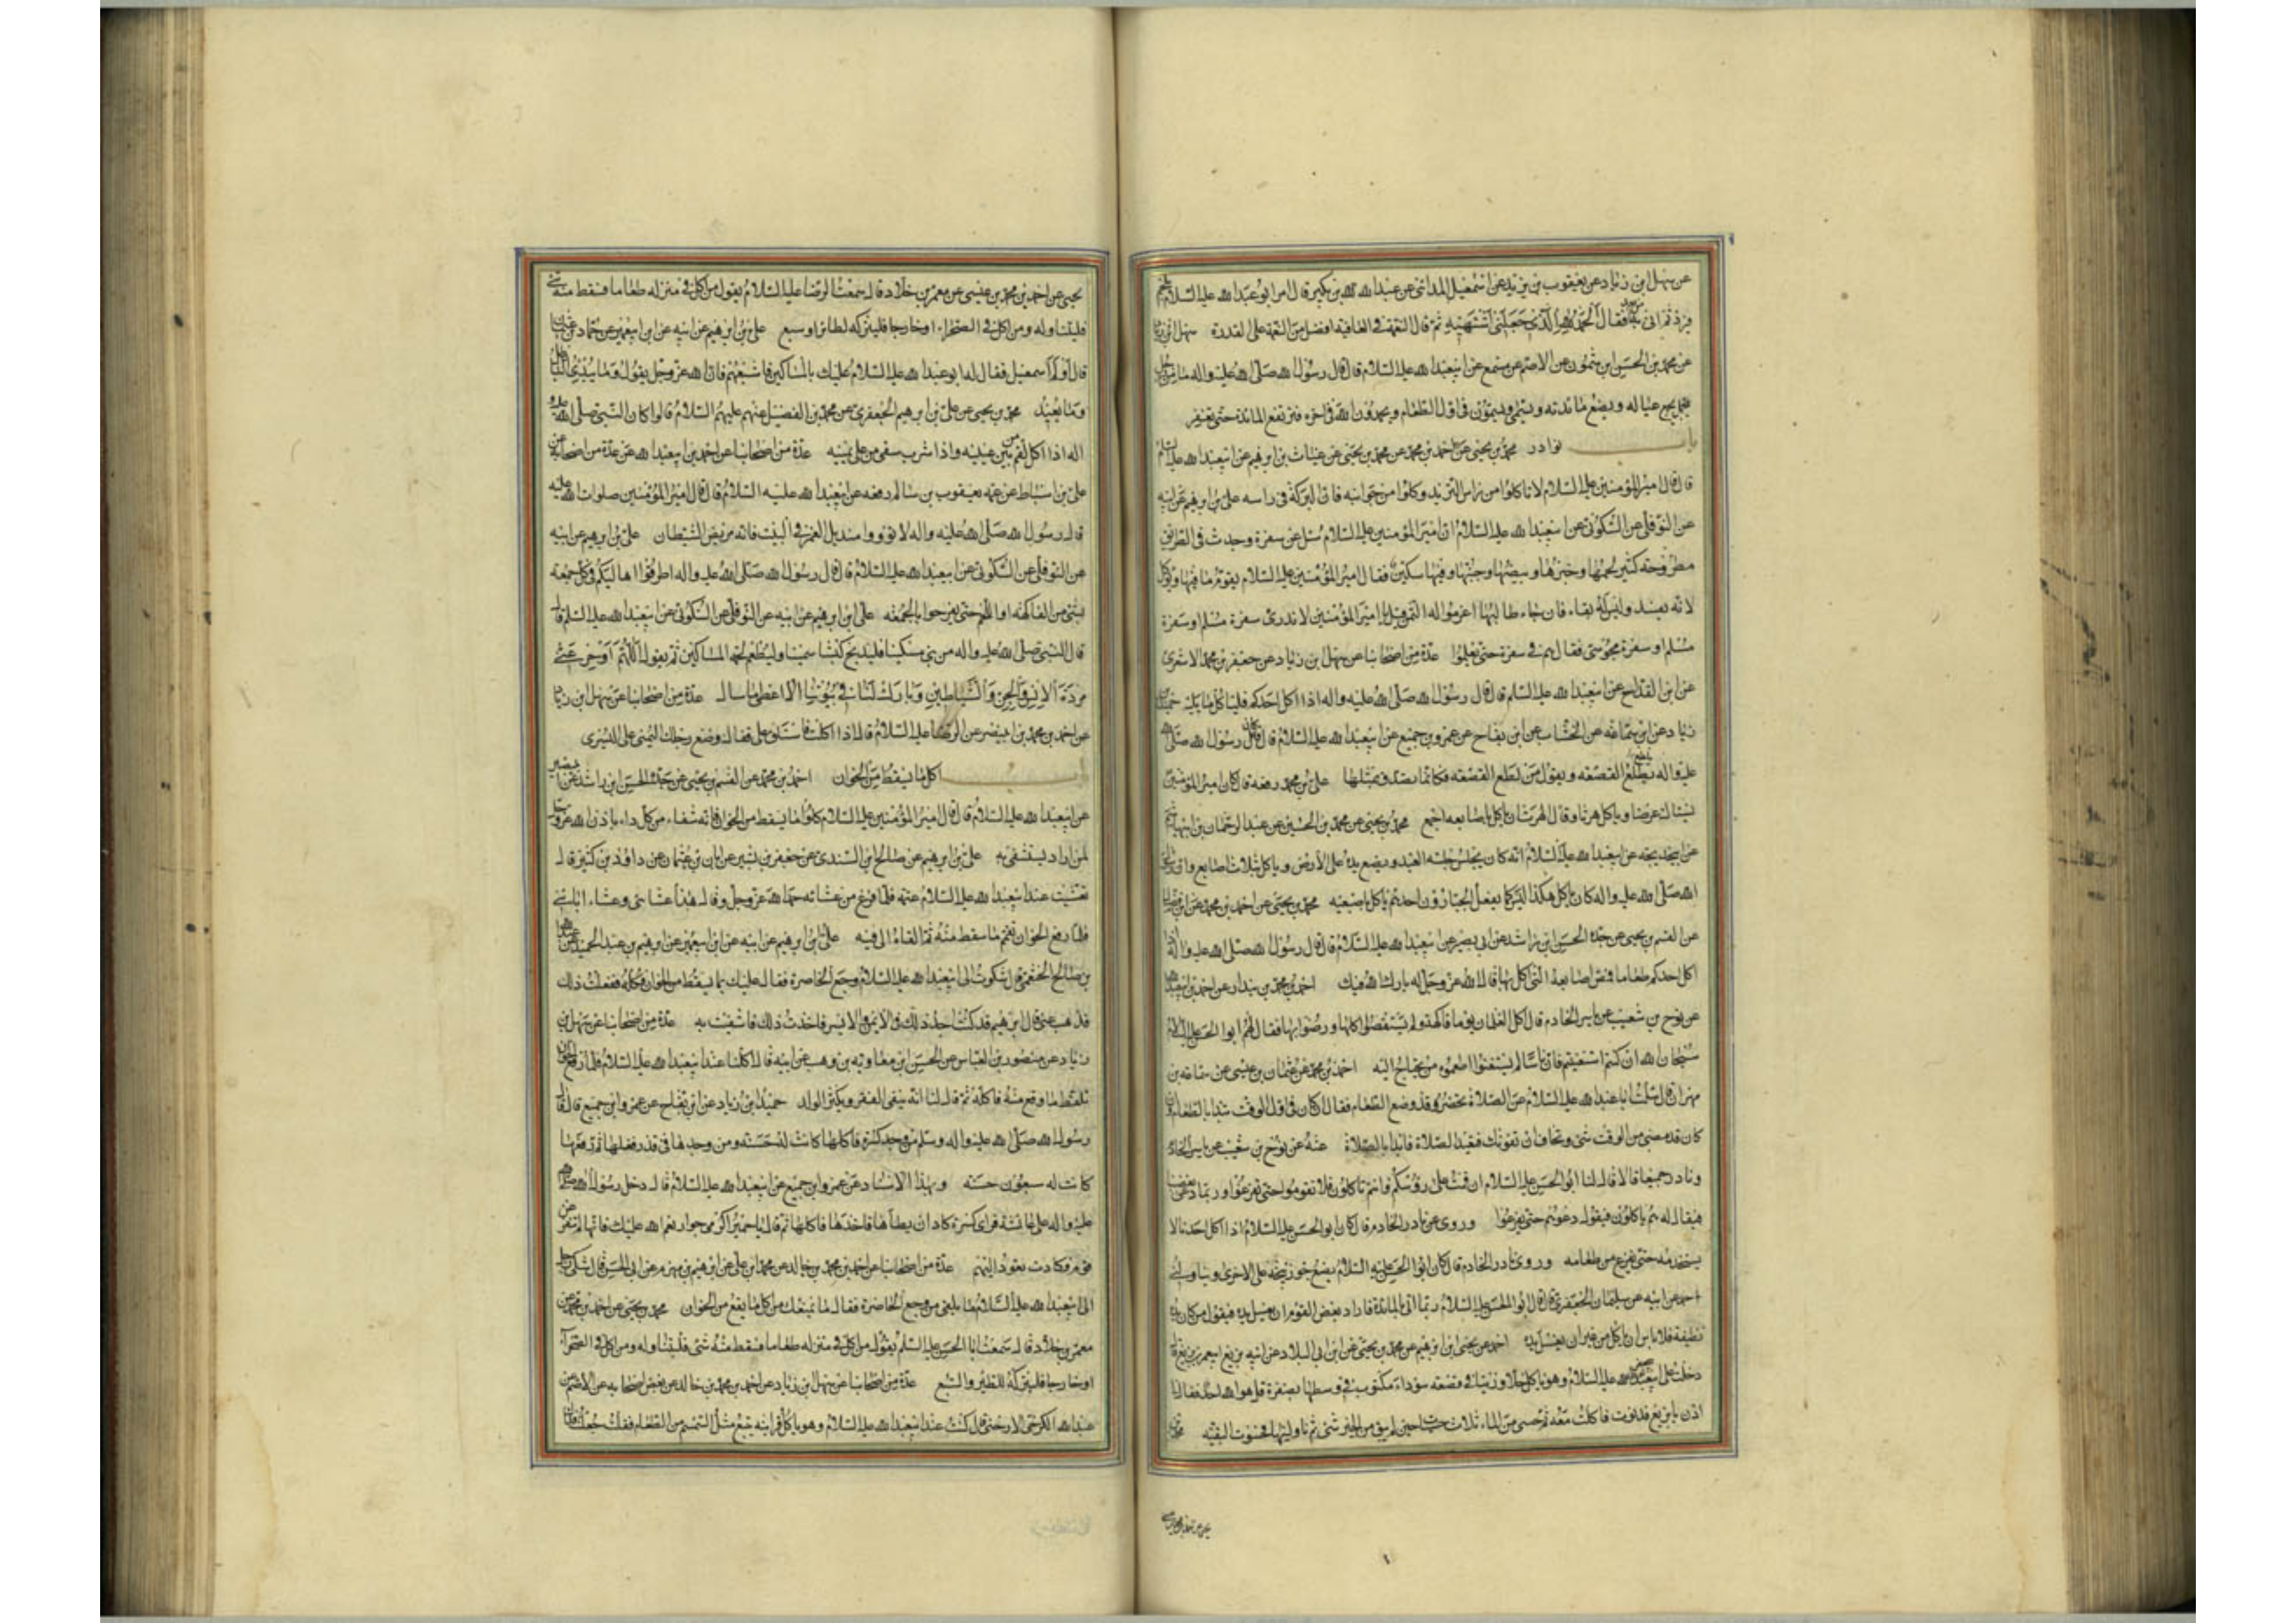 عن سهل ابن زياد عن يعقوب بن يزيد عن اسمعيل المدائني عن عبدالله بن بكير قال امر ابو عبدالله عليه السلام بلحم
فبرد ثم اتى به فقال الحمد لله الذي جعلني اشتهيه ثم قال النعمة في العافية افضل من النعمة على القدرة سهل ابن زياد
عن محمد بن الحسن ابن شمون عن الاصم عن مسمع عن ابيعبدالله عليه السلام قال قال رسول الله صلى الله عليه واله ما من رجل
يجمع عياله ويضع مائدته ويسمي ويسمون في اول الطعام ويحمدون الله في اخره فترتفع المائدة حتى يغفر
باب نوادر محمد بن يحيى عن احمد بن محمد عن محمد بن يحيى عن غياث بن ابرهيم عن ابيعبدالله عليه السلام
قال قال امير المؤمنين عليه السلام لا تاكلوا من راس الثريد وكلوا من جوانبه فان البركة في راسه علي بن ابرهيم عن ابيه
عن النوفلي عن السكوني عن ابيعبدالله عليه السلام ان امير المؤمنين عليه السلام سئل عن سفرة وجدت في الطريق
مطروحة كثير لحمها وخبزها وبيضها وجبنها وفيها سكين فقال امير المؤمنين عليه السلام يقوم ما فيها ويؤكل
لانه يفسد وليس له بقاء فان جاء طالبها اغرموا له الثمن قيل يا امير المؤمنين لا ندرى سفرة مسلم او سفرة
مسلم او سفرة مجوسي فقال هم في سعة حتى يعلموا عدة من اصحابنا عن سهل بن زياد عن جعفر بن محمد الاشعرى
عن ابن القداح عن ابيعبدالله عليه السلم قال قال رسول الله صلى الله عليه واله اذا اكل احدكم فلياكل مما يليه حميد بن
زياد عن ابن سماعه عن الخشاب عن ابن بقاح عن عمرو بن جميع عن ابيعبدالله عليه السلام قال كان رسول الله صلى الله
عليه واله يلطع القصعه ويقول من لطع القصعه فكانما تصدق بمثلها علي بن محمد رفعه قال كان امير المؤمنين
يستاك عرضا وياكل هرثا وقال الهرثان ياكل باصابعه اجمع محمد بن يحيى عن محمد بن الحسين عن عبد الرحمان بن ابيهاشم
عن ابيخديجه عن ابيعبدالله عليه السلام انه كان يجلس جلسة العبد ويضع يده على الارض وياكل بثلاث اصابع وان رسول
الله صلى الله عليه واله كان ياكل هكذا ليس كما يفعل الجبارون احدهم ياكل باصبعيه محمد بن يحيى عن احمد بن محمد عن ابن فضال
عن القسم بن يحيى عن جده الحسن ابن راشد عن ابي بصير عن ابيعبدالله عليه السلام قال قال رسول الله صلى الله عليه واله اذا
اكل احدكم طعاما فمص اصابعه التي اكل بها قال الله عز وجل له بارك الله فيك احمد بن محمد بن بندار عن احمد بن ابيعبدالله
عن نوح بن شعيب عن ياسر الخادم قال اكل الغلمان يوما فاكهة ولم يستقصوا اكلها ورموا بها فقال لهم ابو الحسن عليه السلام
سبحان الله ان كنتم استغنيتم فان ناسا لم يستغنوا اطعموه من يحتاج اليه احمد بن محمد عن عثمان بن عيسى عن سماعه بن
مهران قال سئلت ابا عبدالله عليه السلام عن الصلاة تحضر وقد وضع الطعام فقال ان كان في اول الوقت يبدا بالطعام وان
كان قد مضى من الوقت شئ وتخاف ان تفوتك فتعيد الصلاة فابدا بالصلاة عنه عن نوح بن شعيب عن ياسر الخادم
ونادر جميعا قالا قال لنا ابو الحسن عليه السلام ان قمت على رؤسكم وانتم تاكلون فلا تقوموا حتى تفرغوا ولربما دعى بعضنا
فيقال له هم ياكلون فيقول دعوهم حتى يفرغوا وروى عن نادر الخادم قال كان ابو الحسن عليه السلام اذا اكل احدنا لا
يستخدمه حتى يفرغ من طعامه وروى نادر الخادم قال كان ابو الحسن عليه السلام يضع جوزينجه على الاخرى ويناولني
احمد عن ابيه عن سليمان الجعفري قال قال ابو الحسن عليه السلام ربما اتى بالمائدة فاراد بعض القوم ان يغسل يده فيقول من كان يده
نظيفة فلا باس ان ياكل من غير ان يغسل يده احمد عن يحيى ابن ابرهيم عن محمد بن يحيى عن ابن ابي البلاد عن ابيه عن بزيع ابن عمر بن بزيع قال
دخلت على ابيجعفر عليه السلام وهو ياكل خلا وزيتا في قصعه سوداء مكتوب في وسطها بصفرة قل هو الله احد فقال لي
ادن يا بزيع فدنوت فاكلت معه ثم حسى من الماء ثلاث حسيات حين لم يبق من الخبز شئ ثم ناولنيها فحسوت البقيه
يحيى عن احمد بن محمد بن عيسى
يحيى عن احمد بن محمد بن عيسى عن معمر بن خلاد قال سمعت الرضا عليه السلام يقول من اكل في منزله طعاما فسقط منه شئ
فليتناوله ومن اكل في الصحراء او خارجا فليتركه لطائر او سبع علي بن ابرهيم عن ابيه عن ابن ابيعمير عن حماد بن عثمان
قال اولم اسمعيل فقال له ابو عبدالله عليه السلام عليك بالمساكين فاشبعهم فان الله عز وجل يقول وما يبدئ الباطل
وما يعيد محمد بن يحيى عن علي بن ابرهيم الجعفري عن محمد بن الفضيل عنهم عليهم السلام قالوا كان النبي صلى الله عليه و
اله اذا اكل لقم من بين عينيه واذا شرب سقى من على يمينه عدة من اصحابنا عن احمد بن ابيعبدالله عن عدة من اصحابه عن
علي بن اسباط عن عمه يعقوب بن سالم رفعه عن ابيعبدالله عليه السلام قال قال امير المؤمنين صلوات الله عليه
قال رسول الله صلى الله عليه واله لا تؤووا منديل الغمر في البيت فانه مربض الشيطان علي بن ابرهيم عن ابيه
عن النوفلي عن السكوني عن ابيعبدالله عليه السلام قال قال رسول الله صلى الله عليه واله اطرفوا اهاليكم في كل جمعة
بشئ من الفاكهة او اللحم حتى يفرحوا بالجمعه علي ابن ابرهيم عن ابيه عن النوفلي عن السكوني عن ابيعبدالله عليه السلم قال
قال النبي صلى الله عليه واله من بنى مسكنا فليذبح كبشا سمينا وليطعم لحمه المساكين ثم يقول اللهم ادحر عني
مردة الانس والجن والشياطين وبارك لنا في بيوتنا الا اعطي ما سال عدة من اصحابنا عن سهل ابن زياد
عن احمد بن محمد بن ابينصر عن الرضا عليه السلام قال اذا اكلت فاستلق على قفاك وضع رجلك اليمنى على اليسرى
باب اكل ما يسقط من الخوان احمد بن محمد عن القسم بن يحيى عن جده الحسن ابن راشد عن ابي بصير
عن ابيعبدالله عليه السلام قال قال امير المؤمنين عليه السلام كلوا ما يسقط من الخوان فانه شفاء من كل داء باذن الله عز وجل
لمن اراد يستشفى به علي بن ابرهيم عن صالح ابن السندى عن جعفر بن بشير عن ابان بن عثمان عن داود بن كثير قال
تعشيت عند ابيعبدالله عليه السلام عتمة فلما فرغ من عشائه حمد الله عز وجل وقال هذا عشائى وعشاء ابائي
فلما رفع الخوان تقمم ما سقط منه ثم القاه الى فيه علي بن ابرهيم عن ابيه عن ابن ابيعمير عن ابرهيم بن عبد الحميد عن عبدالله
بن صالح الخثعمي قال شكوت الى ابيعبدالله عليه السلام وجع الخاصرة فقال عليك بما يسقط من الخوان فكله ففعلت ذلك
فذهب عني قال ابرهيم قد كنت اجد ذلك في الايمن والايسر فاخذت ذلك فانتفعت به عدة من اصحابنا عن سهل بن
زياد عن منصور بن العباس عن الحسن ابن معاويه بن وهب عن ابيه قال اكلنا عند ابيعبدالله عليه السلام فلما رفع الخوان
تلقط ما وقع منه فاكله ثم قال لنا انه ينفى الفقر ويكثر الولد حميد ابن زياد عن ابن بقاح عن عمرو ابن جميع قال قال
رسول الله صلى الله عليه واله وسلم من وجد كسرة فاكلها كانت له حسنة ومن وجدها في قذر فغسلها ثم رفعها
كانت له سبعون حسنه وبهذا الاسناد عن عمرو ابن جميع عن ابيعبدالله عليه السلام قال دخل رسول الله صلى الله
عليه واله على عائشة فراى كسرة كاد ان يطاها فاخذها فاكلها ثم قال يا حميرا اكرمى جوار نعم الله عليك فانها لم تنفر عن
قوم فكادت تعود اليهم عدة من اصحابنا عن احمد بن محمد بن خالد عن محمد ابن علي عن ابرهيم بن مهزم عن ابي الحسن قال شكى رجل
الى ابيعبدالله عليه السلام ما يلقى من وجع الخاصرة فقال ما يمنعك من اكل ما يقع من الخوان محمد بن يحيى عن احمد بن محمد عن
معمر بن خلاد قال سمعت ابا الحسن عليه السلم يقول من اكل في منزله طعاما فسقط منه شئ فليتناوله ومن اكل في الصحراء
او خارجا فليتركه للطير والسبع عدة من اصحابنا عن سهل ابن زياد عن احمد بن محمد بن خالد عن بعض اصحابه عن الاصم عن
عبدالله الارجاني قال كنت عند ابيعبدالله عليه السلام وهو ياكل فرايته يتبع مثل السمسم من الطعام فقلت جعلت فداك